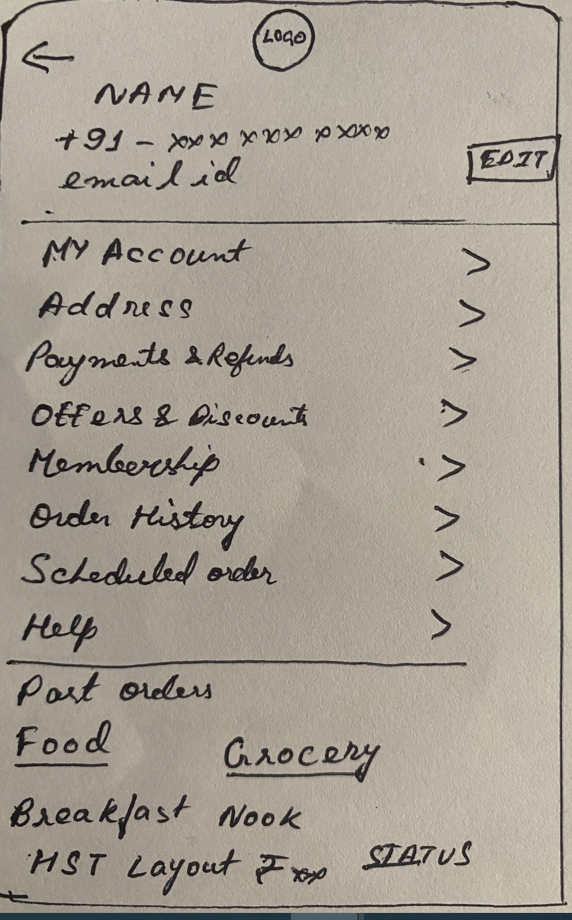 LOGO
NAME
+91 - xxx xxx xxxx
email id
EDIT
MY Account >
Address >
Payments & Refunds >
Offers & Discounts >
Membership >
Order History >
Scheduled order >
Help >
Past orders
Food Grocery
Breakfast Nook
HST Layout ₹xxx STATUS